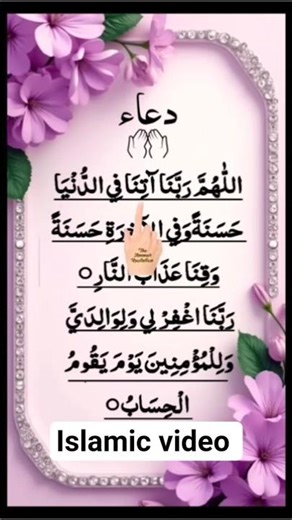 دعاء
اَللّٰهُمَّ رَبَّنَا آتِنَا فِي الدُّنْيَا
حَسَنَةً وَفِي الْآخِرَةِ حَسَنَةً
وَقِنَا عَذَابَ النَّارِ ○
رَبَّنَا اغْفِرْ لِي وَلِوَالِدَيَّ
وَلِلْمُؤْمِنِينَ يَوْمَ يَقُومُ
الْحِسَابُ ○
Islamic video